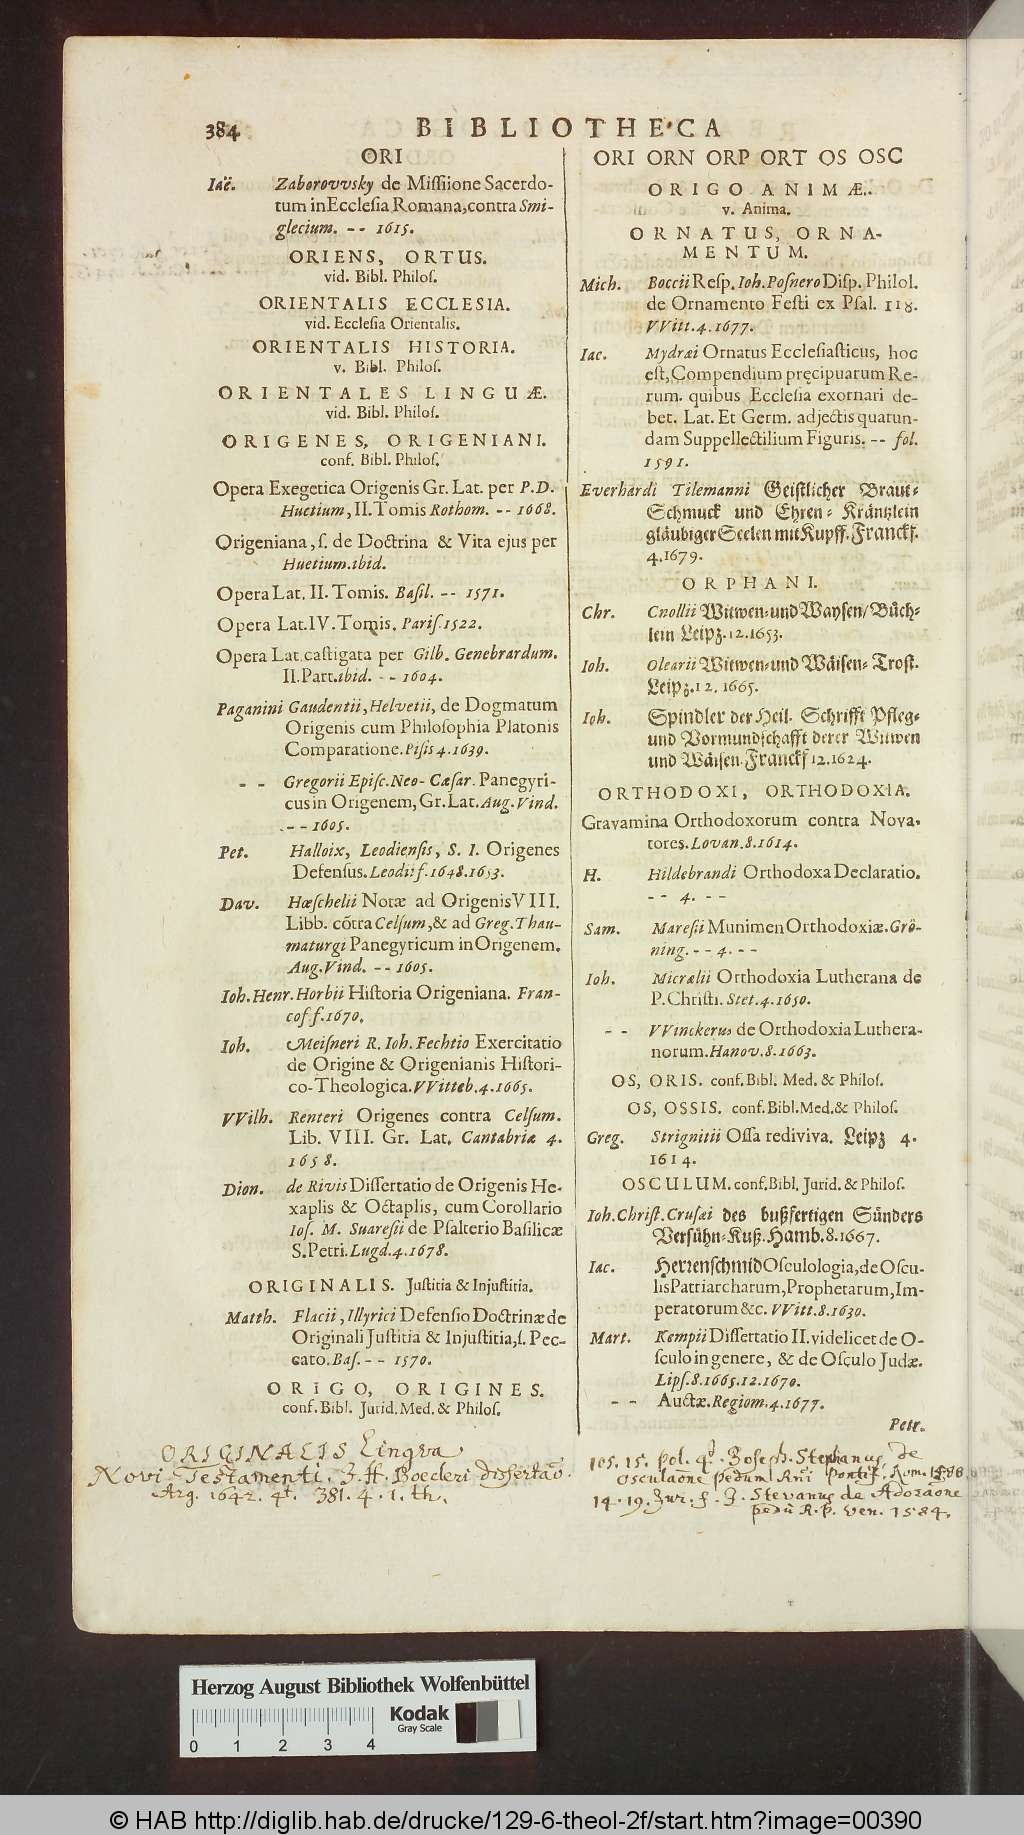 384
BIBLIOTHECA
ORI
Iac. Zaborovvsky de Missiione Sacerdo-
tum in Ecclesia Romana, contra Smi-
glecium. -- 1615.
ORIENS, ORTUS.
vid. Bibl. Philos.
ORIENTALIS ECCLESIA.
vid. Ecclesia Orientalis.
ORIENTALIS HISTORIA.
v. Bibl. Philos.
ORIENTALES LINGUÆ.
vid. Bibl. Philos.
ORIGENES, ORIGENIANI.
conf. Bibl. Philos.
Opera Exegetica Origenis Gr. Lat. per P.D.
Huetium, II. Tomis Rothom. -- 1668.
Origeniana, s. de Doctrina & Vita ejus per
Huetium. ibid.
Opera Lat. II. Tomis. Basil. -- 1571.
Opera Lat. IV. Tomis. Paris. 1522.
Opera Lat. castigata per Gilb. Genebrardum.
II. Part. ibid. -- 1604.
Paganini Gaudentii, Helvetii, de Dogmatum
Origenis cum Philosophia Platonis
Comparatione. Pisis 4. 1639.
-- Gregorii Episc. Neo-Cæsar. Panegyri-
cus in Origenem, Gr. Lat. Aug. Vind.
-- 1605.
Pet. Halloix, Leodiensis, S. I. Origenes
Defensus. Leodii f. 1648. 1653.
Dav. Hœschelii Notæ ad Origenis VIII.
Libb. cõtra Celsum, & ad Greg. Thau-
maturgi Panegyricum in Origenem.
Aug. Vind. -- 1605.
Ioh. Henr. Horbii Historia Origeniana. Fran-
cof f. 1670.
Ioh. Meisneri R. Ioh. Fechtio Exercitatio
de Origine & Origenianis Histori-
co-Theologica. VVitteb. 4. 1665.
VVilh. Renteri Origenes contra Celsum.
Lib. VIII. Gr. Lat. Cantabriæ 4.
1658.
Dion. de Rivis Dissertatio de Origenis He-
xaplis & Octaplis, cum Corollario
Ios. M. Suaresii de Psalterio Basilicæ
S. Petri. Lugd. 4. 1678.
ORIGINALIS. Justitia & Injustitia.
Matth. Flacii, Illyrici Defensio Doctrinæ de
Originali Justitia & Injustitia, s. Pec-
cato. Bas. -- 1570.
ORIGO, ORIGINES.
conf. Bibl. Jurid. Med. & Philos.
ORIGINALIS Lingva
Novi Testamenti. J. H. Boecleri dissertaõ.
Arg. 1642. 4t. 381. 4. 1. th.
ORI ORN ORP ORT OS OSC
ORIGO ANIMÆ.
v. Anima.
ORNATUS, ORNA-
MENTUM.
Mich. Boccii Resp. Ioh. Posnero Disp. Philol.
de Ornamento Festi ex Psal. 118.
VVitt. 4. 1677.
Iac. Mydræi Ornatus Ecclesiasticus, hoc
est, Compendium pręcipuarum Re-
rum. quibus Ecclesia exornari de-
bet. Lat. Et Germ. adjectis quarun-
dam Suppellectilium Figuris. -- fol.
1591.
Everhardi Tilemanni Geistlicher Braut-
Schmuck und Ehren-Kräntzlein
gläubiger Seelen mit Kupff. Franckf.
4. 1679.
ORPHANI.
Chr. Cnollii Witwen- und Waysen/Büch-
lein Leipz. 12. 1653.
Ioh. Olearii Witwen- und Wäisen-Trost.
Leipz. 12. 1665.
Ioh. Spindler der Heil. Schrifft Pfleg-
und Vormundschafft derer Witwen
und Wäisen. Franckf 12. 1624.
ORTHODOXI, ORTHODOXIA.
Gravamina Orthodoxorum contra Nova-
tores. Lovan. 8. 1614.
H. Hildebrandi Orthodoxa Declaratio.
-- 4. --
Sam. Maresii Munimen Orthodoxiæ. Grö-
ning. -- 4. --
Ioh. Micrælii Orthodoxia Lutherana de
P. Christi. Stet. 4. 1650.
-- VVinckerus de Orthodoxia Luthera-
norum. Hanov. 8. 1663.
OS, ORIS. conf. Bibl. Med. & Philos.
OS, OSSIS. conf. Bibl. Med. & Philos.
Greg. Strignitii Ossa rediviva. Leipz 4.
1614.
OSCULUM. conf. Bibl. Jurid. & Philos.
Ioh. Christ. Crusæi des bußfertigen Sünders
Versühn-Kuß. Hamb. 8. 1667.
Iac. Herrenschmid Osculologia, de Oscu-
lis Patriarcharum, Prophetarum, Im-
peratorum &c. VVitt. 8. 1630.
Mart. Kempii Dissertatio II. videlicet de O-
sculo in genere, & de Osculo Judæ.
Lips. 8. 1665. 12. 1670.
-- Auctæ. Regiom. 4. 1677.
Petr.
105. 15. pol. 4t. Joseph. Stephanus, de
osculaõne pedum Rñi Pontif. Rom. 1588
14. 19. Jur. f. J. Stevanus de Adoraõne
pedũ R. P. Ven. 1584.
Herzog August Bibliothek Wolfenbüttel
Kodak
Gray Scale
0 1 2 3 4
© HAB http://diglib.hab.de/drucke/129-6-theol-2f/start.htm?image=00390